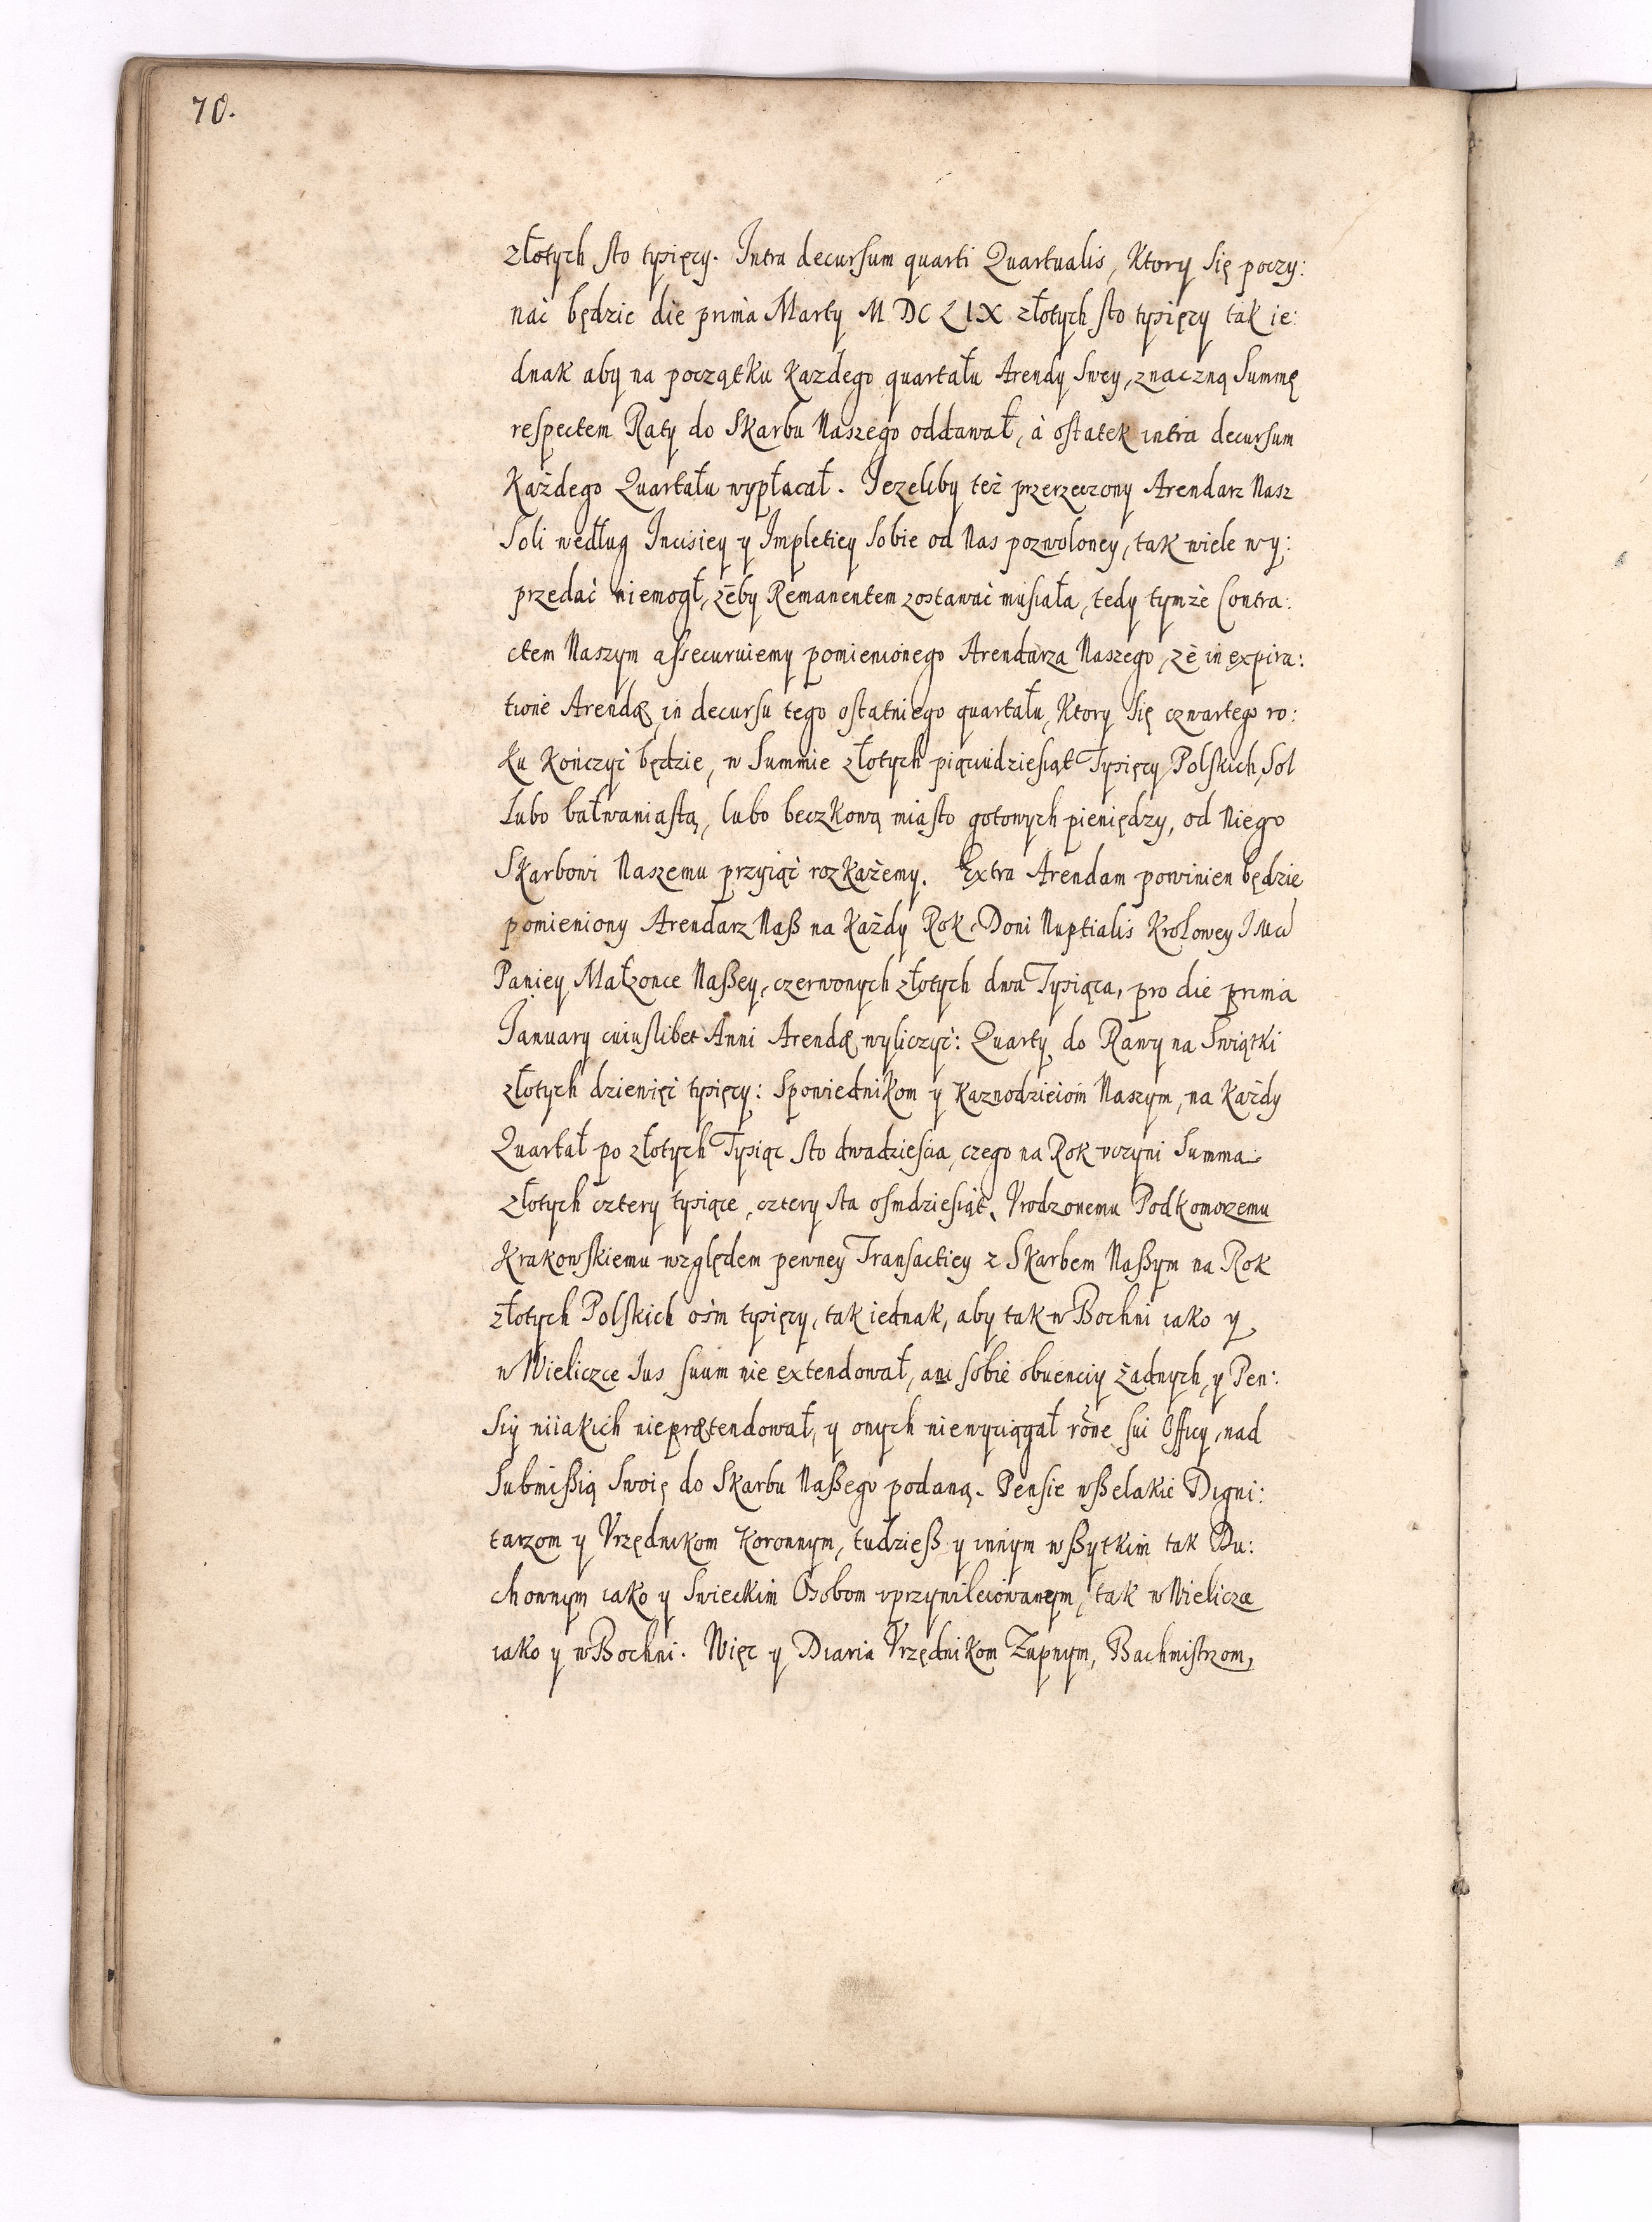 70.
złotych sto tysięcy. Intra decursum quarti Quartualis, Ktory się poczy:
nać będzie die prima Marty M DC LIX złotych sto tysięcy tak ie:
dnak aby na początku Kazdego quartału Arendy Swey, znaczną Summę
respectem Raty do Skarbu Naszego oddawał, à ostatek intra decursum
Każdego Quartału wypłacał. Iezeliby też przerzeczony Arendarz Nasz
Soli według Incisiey y Impletiey Sobie od Nas pozwoloney, tak wiele wy:
przedać niemogł, żeby Remanentem zostawać musiała, tedy tymże Contra:
ctem Naszym assecuruiemy pomienionego Arendarza Naszego, że in expira:
tione Arendę in decursu tego ostatniego quartału, Ktory Się czwartego ro:
Ku Kończyć będzie, w Summie złotych pięciudziesiąt Tysięcy Polskich, Sol
Lubo bałwaniastą, lubo beczkową miasto gotowych pieniędzy, od Niego
Skarbowi Naszemu przyiąć rozkażemy. Extra Arendam powinien będzie
pomieniony Arendarz Naß na Każdy Rok, Doni Nuptialis Krolowey I Mci
Paniey Małżonce Naßey, czerwonych złotych dwa Tysiąca, pro die prima
Ianuary cuiuslibet Anni Arendę wyliczyć: Quarty do Rawy na Świątki
złotych dziewięć tysięcy: Spowiednikom y Kaznodzieiom Naszym, na Każdy
Quartał po złotych Tysiąc sto dwadzieścia, czego na Rok uczyni Summa
złotych cztery tysiące, cztery sta ośmdziesiąt, Vrodzonemu Podkomorzemu
Krakowskiemu względem pewney Transactiey z Skarbem Naßym na Rok
złotych Polskich ośm tysięcy, tak iednak, aby tak w Bochni iako y
w Wieliczce Ius suum nie extendował, ani sobie obuenciy żadnych, y Pen:
siy niiakich nieprętendował, y onych niewyciągał rõne sui Officy, nad
Submißią Swoię do Skarbu Naßego podaną. Pensie wßelakie Digni:
tarzom y Vrzędnikom Koronnym, tudzieß y innym wßytkim tak Du:
chownym iako y Swieckim Osobom uprzywileiowanym, tak w Wielicze
iako y w Bochni. Więc y Diaria Vrzędnikom Zupnym, Bachmistrzom,